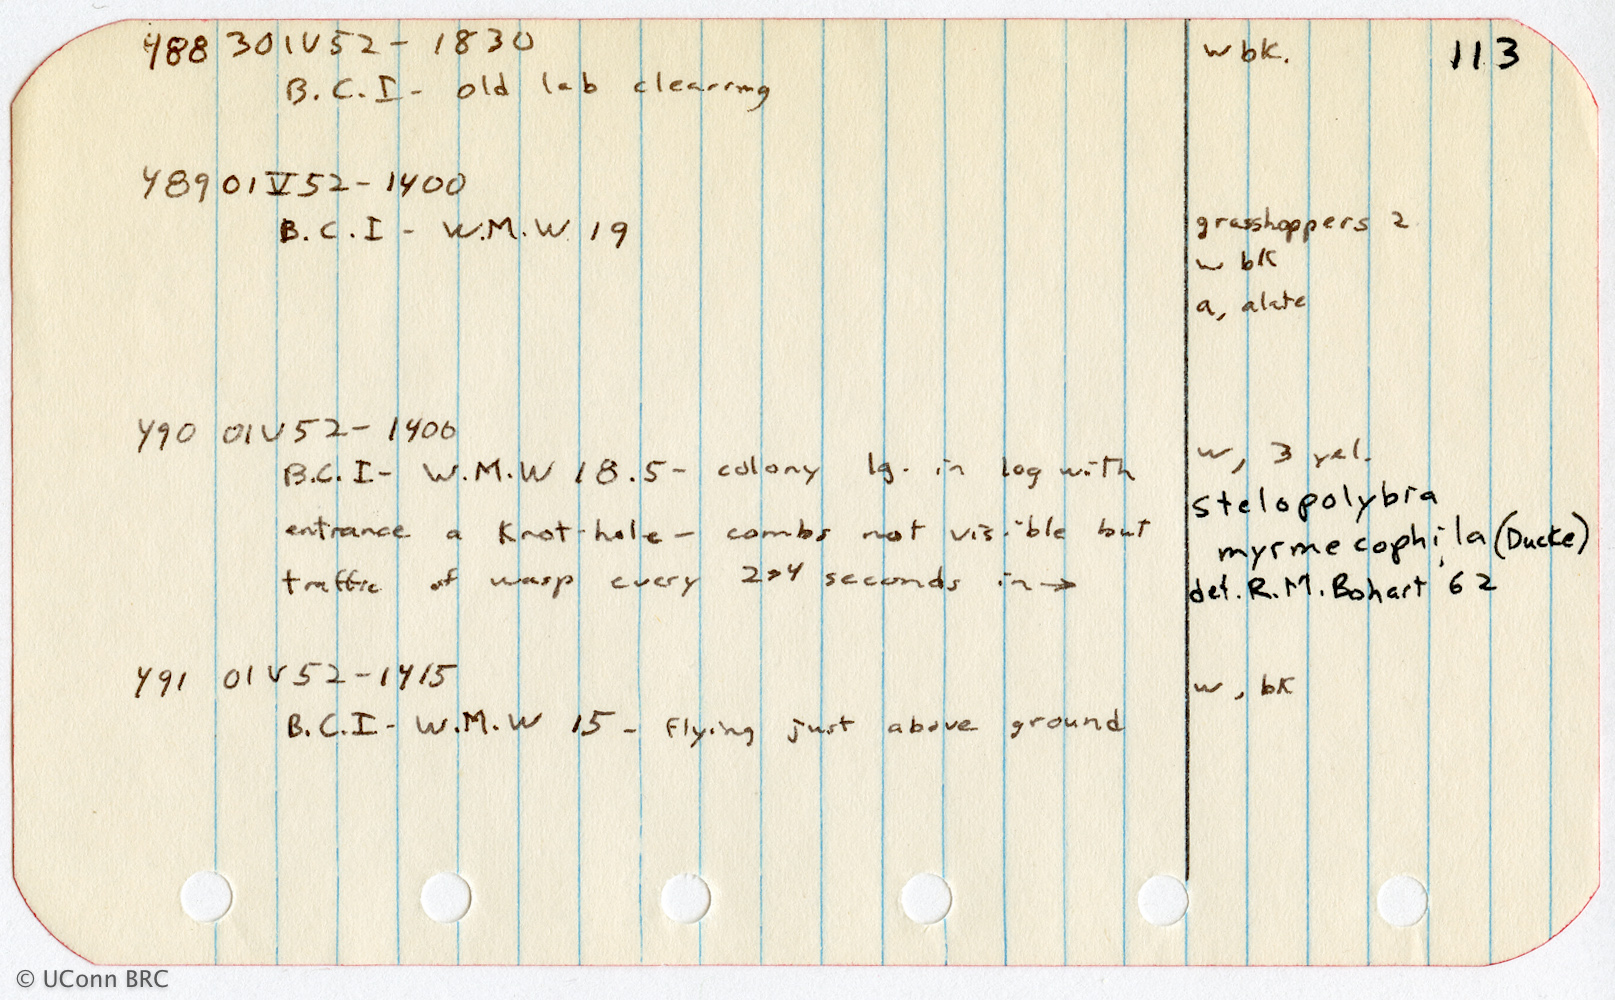 488 30IV52 - 1830 w bk. 113
B.C.I - old lab clearing
489 01V52 - 1400
B.C.I - W.M.W 19 grasshoppers 2
w bk
a, alate
490 01V52 - 1400
B.C.I - W.M.W 18.5 - colony lg. in log with w, 3 yel.
entrance a Knot-hole - combs not visible but stelopolybia
traffic of wasp every 2→4 seconds in → myrmecophila (Ducke)
det. R.M. Bohart '62
491 01V52 - 1415 w, bk
B.C.I - W.M.W 15 - flying just above ground
© UConn BRC